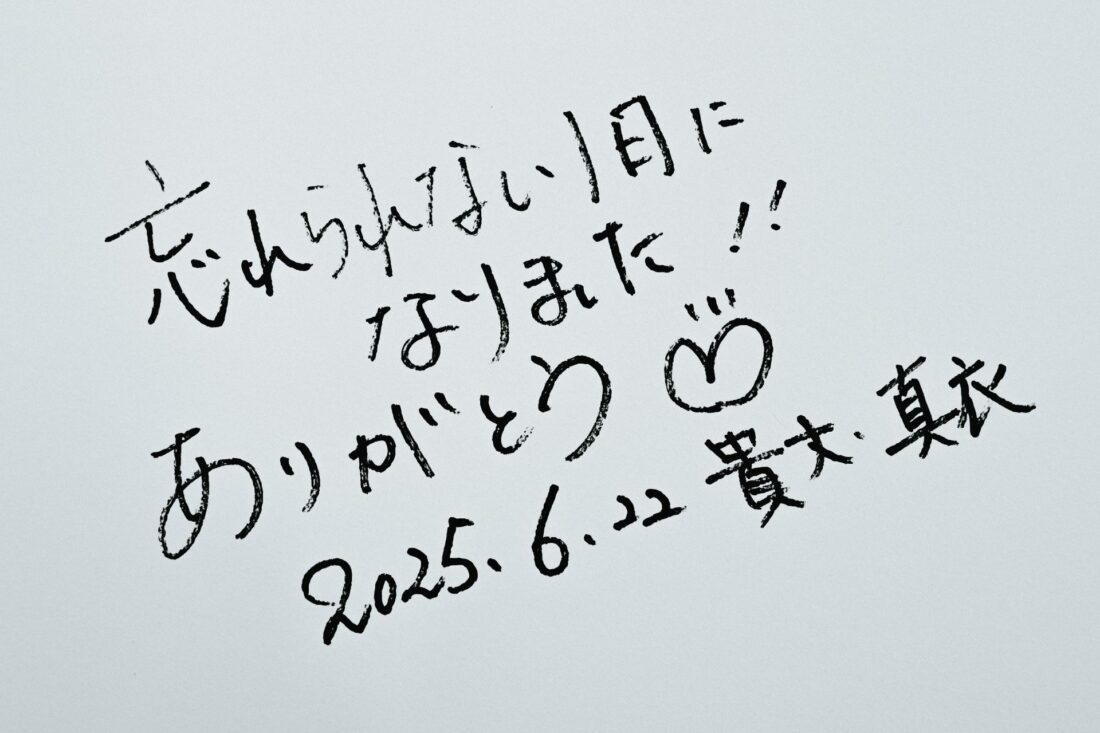 忘れられない1日に
なりました!!
ありがとう♡
2025.6.22 貴大・真衣